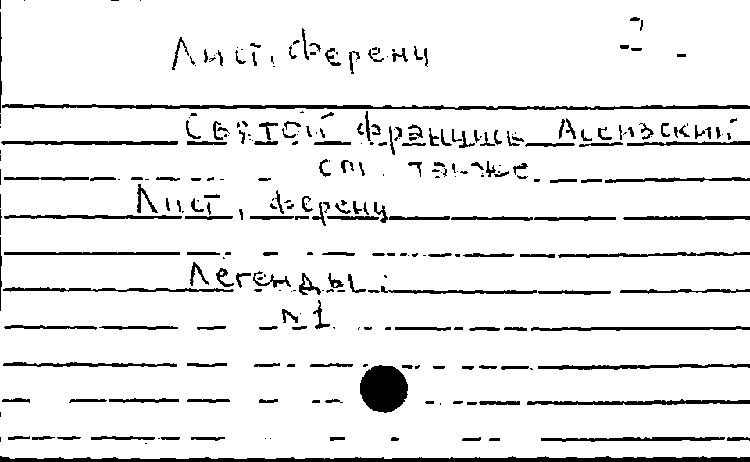 Лист, Ференц
Святой Франциск Ассизский
см. также
Лист, Ференц
Легенды:
N1